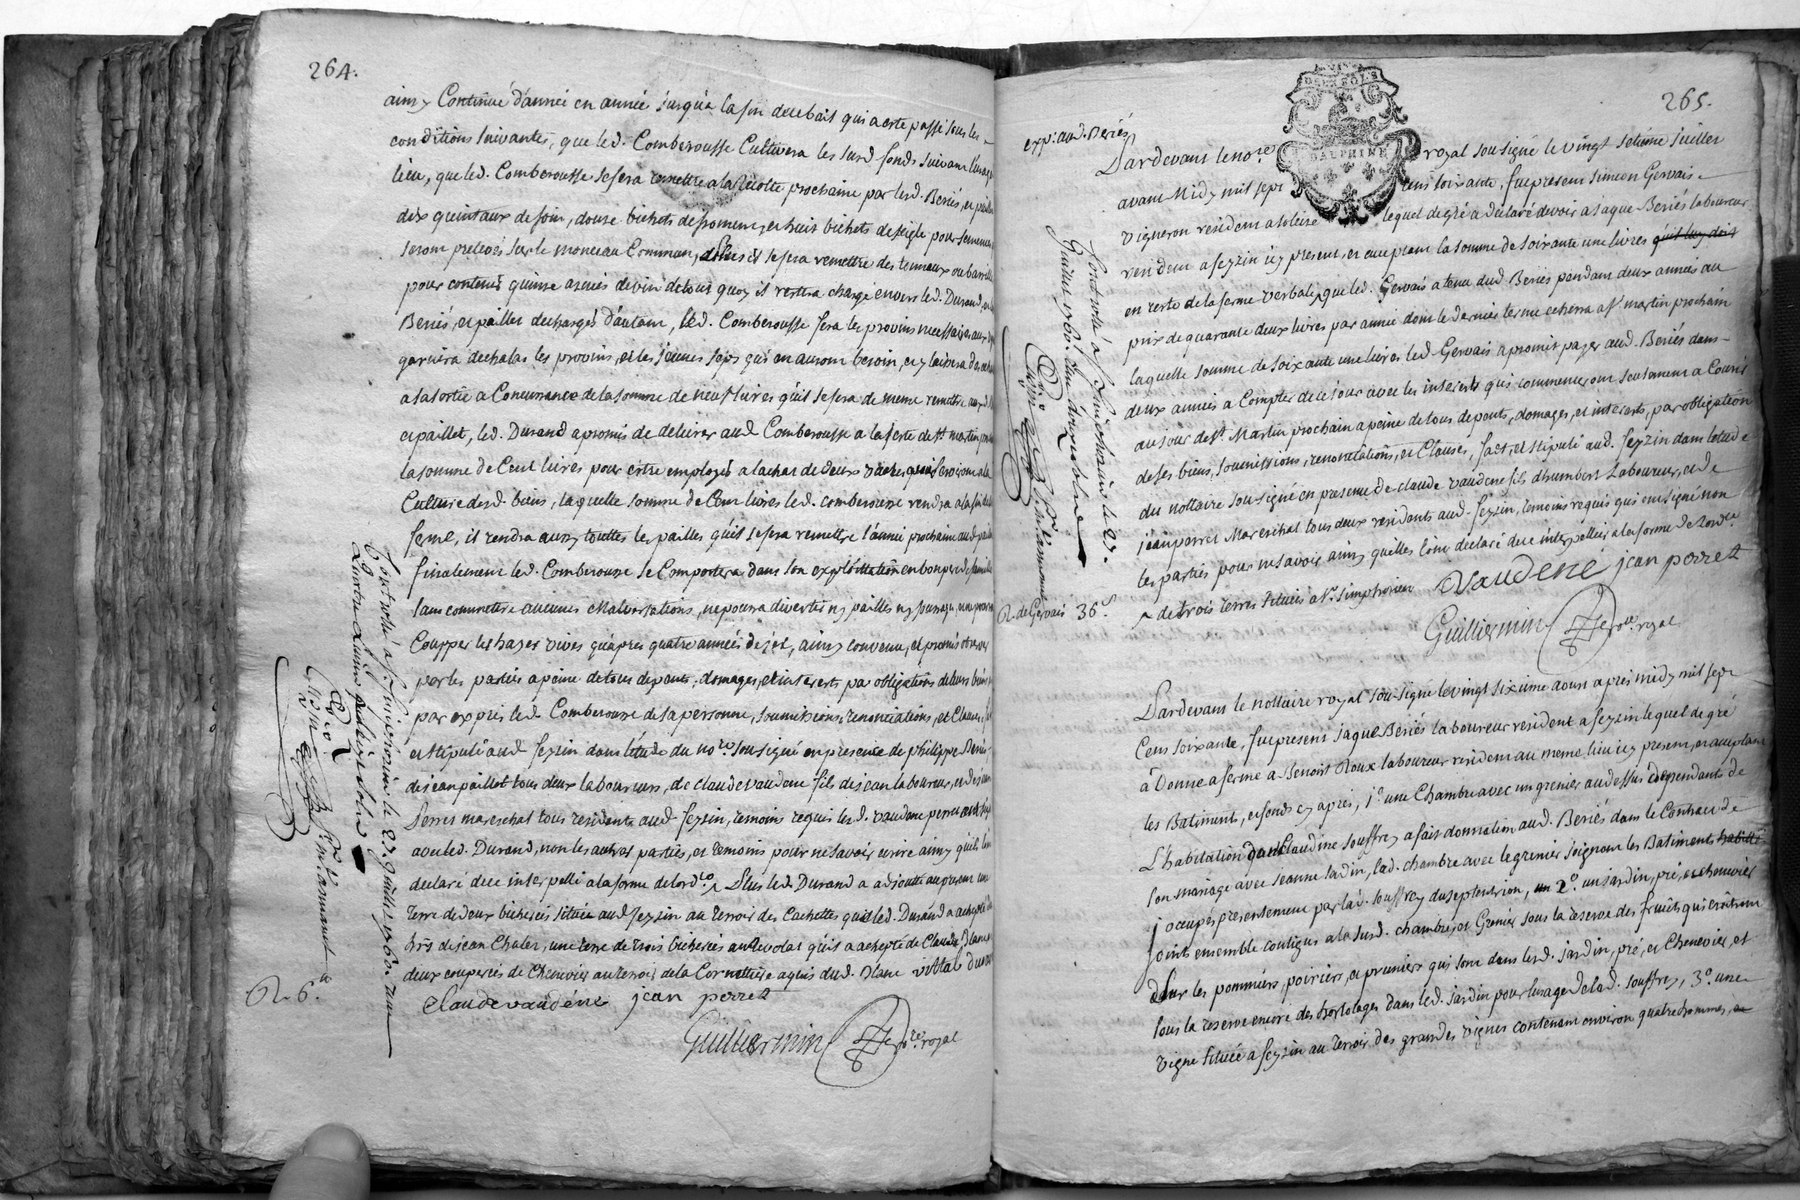 264.
ainsy Continüe d'anneé en anneé jusqu'a la fin dud bail qui a esté passé sous les
conditions suivantes, que led. Comberousse Cultivera les susd. fonds suivant l'usage
lieu, que led. Comberousse se fera remettre a la Recolte prochaine par lesd. Beriés, et
dix quintaux de foin, douse bichets de froment, et huit bichets de seigle pour semences
seront prelevés sur le monceau Commun, il se fera remettre des tonneaux ou barriques
pour contenir quinse asneés de vin de tout quoy il restera chargé envers led. Durand,
Beriés, et paillet dechargés d'autant, led. Comberousse fera les provins necessaires aux
garnira dechalas les provins, et les jeunes seps qui en auront besoin, et y laissera
a sa sortie a Concurrance de la somme de neuf livres qu'il se fera de meme remettre
et paillet, led. Durand a promis de delivrer aud. Comberousse a la feste de St martin
la somme de Cent livres pour estre employeé a l'achat de deux vaches, qui serviront a la
Culture desd. biens, laquelle somme de Cent livres led. comberousse rendra a la fin
ferme, il rendra aussy touttes les pailles qu'il se fera remettre l'anneé prochaine
finalement led. Comberousse se Comportera dans son exploittation en bon pere de famille
sans commettre aucunes Malversations, ne pourra divertir ny pailles ny fourrages, ne pourra
Coupper les hayes vives qu'apres quatre anneés de jet, ainsy convenu, et promis observer
par les parties a peine de tous depents, domages, et interests par obligations de leurs biens
par exprés led. Comberousse de sa personne, soumissions, renonciations, et Clauses,
et stipulé aud. feyzin dans l'etude du nore. sousigné en presence de philippe
de jean paillet tous deux laboureurs, de claude vaudene fils de jean laboureur, et de jean
perret mareschal tous residents aud. feyzin, temoins requis led. vaudene perret
avec led. Durand, non les autres parties, et temoins pour ne sçavoir ecrire ainsy qu'ils l'ont
declaré de ce interpellé a la forme de lord.ce Plus led. Durand a adjoutté au present une
Terre de deux bichereés situeé aud. feyzin au terroir des Cachettes que led. Durand a achepté
hrs de jean Chalen, une terre de trois bichereés au devolat qu'il a achepté de Claude Blanc
deux coupereés de Chenevier au terroir de la Cornettiere aquis dud. Blanc vittal Durand
Claude vaudéne jean perret
Guilliermin nore. royal
Controllé a St simphorien le 27. juillet 1760.
R. 6.
265.
exp: aud. Beriés
DEUX SOLS
DAUPHINE
Pardevant le nore. royal sousigné le vingt sétième juillet
avant Midy mil sept cens soixante, fut present simeon Gervais
vigneron resident a solaise lequel de gré a declaré devoir a jaque Beriés laboureur
resident a feyzin icy present, et acceptant la somme de soixante une livres qu'il luy doit
en reste de la ferme verbale que led. Gervais a tenu dud. Beriés pendant deux anneés au
prix de quarante deux livres par anneé dont le dernier terme echerra a St martin prochain
laquelle somme de soixante une livres led. Gervais a promis payer aud. Beriés dans
deux anneés a Compter de ce jour avec les interests qui commenceront seulement a Courir
au jour de St Martin prochain a peine de tous depents, domages, et interests, par obligation
de ses biens, soumissions, renonciations, et Clauses, fait, et stipulé aud. feyzin dans letude
du nottaire sousigné en presence de claude vaudene fils d'humbert Laboureur, et de
jean perret Mareschal tous deux residents aud. feyzin, temoins requis qui ont signé non
les parties pour ne sçavoir ainsy qu'elles l'ont declaré de ce interpelleés a la forme de lord.ce
de trois terres situeés a St. simphorien Vaudene jean perret
Guilliermin nore. royal
Controllé a St simphorien le 27.
juillet 1760.
R. de Gervais 36 s.
Pardevant le nottaire royal sousigné le vingt sixième aoust aprés midy mil sept
Cens soixante, fut present jaque Beriés laboureur resident a feyzin lequel de gré
a Donné a ferme a Benoit Roux laboureur resident au meme lieu icy present, et acceptant
les Batiments, et fonds cy aprés, 1°. une Chambre avec un grenier audessus dependants de
L'habitation dont Claudine Souffrey a fait donnation aud. Beriés dans le Contract de
son mariage avec jeanne jardin, lad. chambre avec le grenier joignent les Batiments habittés
occupés presentement par lad. souffrey du septentrion, 2°. un jardin, pré, et chenevier
joints ensemble contigus a la susd. chambre, et Grenier sous la reserve des fruits qui croitront
sur les pommiers, poiriers, et pruniers qui sont dans lesd. jardin, pré, et Chenevier, et
sous la reserve encore des hortolages dans led. jardin pour l'usage de lad. souffrey, 3°. une
vigne situeé a feyzin au terroir des grandes vignes contenant environ quatre hommes,